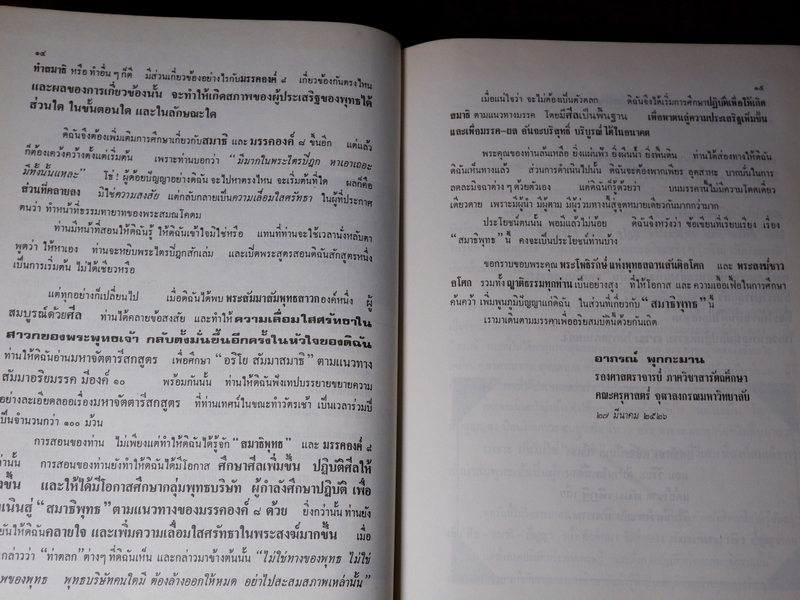 ๑๔
ทำสมาธิ หรือ ทำอื่น ๆ ก็ดี มีส่วนเกี่ยวข้องอย่างไรกับมรรคองค์ ๘ เกี่ยวข้องกันตรงไหน
และผลของการเกี่ยวข้องนั้น จะทำให้เกิดสภาพของผู้ประเสริฐของพุทธได้
ส่วนใด ในขั้นตอนใด และในลักษณะใด
ดิฉันจึงต้องเพิ่มเติมการศึกษาเกี่ยวกับสมาธิ และ มรรคองค์ ๘ ขึ้นอีก แต่แล้ว
ก็ต้องเคว้งคว้างตั้งแต่เริ่มต้น เพราะท่านบอกว่า “มีมากในพระไตรปิฎก หาเอาเถอะ
มีทั้งนั้นแหละ” โช่! ผู้ด้อยปัญญาอย่างดิฉัน จะไปหาตรงไหน จะเริ่มต้นที่ใด ผลก็คือ
ส่วนที่คลายลง มิใช่ความสงสัย แต่กลับกลายเป็นความเลื่อมใสศรัทธา ในผู้ที่ประกาศ
ตนว่า ทำหน้าที่ธรรมทายาทของพระสมณโคดม
ท่านมีหน้าที่สอนให้ดิฉันรู้ ให้ดิฉันเข้าใจมิใช่หรือ แทนที่ท่านจะใช้เวลานั่งหลับตา
พูดว่า ให้หาเอง ท่านจะหยิบพระไตรปิฎกสักเล่ม และเปิดพระสูตรสอนดิฉันสักสูตรหนึ่ง
เป็นการเริ่มต้น ไม่ได้เชียวหรือ
แต่ทุกอย่างก็เปลี่ยนไป เมื่อดิฉันได้พบ พระสัมมาสัมพุทธสาวกองค์หนึ่ง ผู้
สมบูรณ์ด้วยศีล ท่านได้คลายข้อสงสัย และทำให้ความเลื่อมใสศรัทธาใน
สาวกของพระพุทธเจ้า กลับตั้งมั่นขึ้นอีกครั้งในหัวใจของดิฉัน
ท่านให้ดิฉันอ่านมหาจัตตารีสกสูตร เพื่อศึกษา “อริโย สัมมาสมาธิ” ตามแนวทาง
สัมมาอริยมรรค มีองค์ ๑๐ พร้อมกันนั้น ท่านให้ดิฉันฟังเทปบรรยายขยายความ
อย่างละเอียดลออเรื่องมหาจัตตารีสกสูตร ที่ท่านเทศน์ในขณะทำวัตรเช้า เป็นเวลาร่วมปี
เป็นจำนวนกว่า ๑๐๐ ม้วน
การสอนของท่าน ไม่เพียงแต่ทำให้ดิฉันได้รู้จัก “สมาธิพุทธ” และ มรรคองค์ ๘
านั้น การสอนของท่านยังทำให้ดิฉันได้มีโอกาส ศึกษาศีลเพิ่มขึ้น ปฏิบัติศีลให้
งขึ้น และให้ได้มีโอกาสศึกษากลุ่มพุทธบริษัท ผู้กำลังศึกษาปฏิบัติ เพื่อ
เนินสู่ “สมาธิพุทธ” ตามแนวทางของมรรคองค์ ๘ ด้วย ยิ่งกว่านั้น ท่านยัง
ยันให้ดิฉันคลายใจ และเพิ่มความเลื่อมใสศรัทธาในพระสงฆ์มากขึ้น เมื่อ
กล่าวว่า “ท่าตลก” ต่างๆ ที่ดิฉันเห็น และกล่าวมาข้างต้นนั้น “ไม่ใช่ทางของพุทธ ไม่ใช่
พของพุทธ พุทธบริษัทคนใดมี ต้องล้างออกให้หมด อย่าไปสะสมสภาพเหล่านั้น”
๑๕
เมื่อแน่ใจว่า จะไม่ต้องเป็นตัวตลก ดิฉันจึงได้เริ่มการศึกษาปฏิบัติเพื่อให้เกิด
สมาธิ ตามแนวทางมรรค โดยมีศีลเป็นพื้นฐาน เพื่อพาตนสู่ความประเสริฐเพิ่มขึ้น
และเพื่อมรรค-ผล อันจะบริสุทธิ์ บริบูรณ์ ได้ในอนาคต
พระคุณของท่านล้นเหลือ ยิ่งแผ่นฟ้า ยิ่งผืนน้ำ ยิ่งพื้นดิน ท่านได้ส่องทางให้ดิฉัน
ดิฉันเห็นทางแล้ว ส่วนการดำเนินไปนั้น ดิฉันจะต้องพากเพียร อุตสาหะ บากบั่นในการ
ลดละมิจฉาต่าง ๆ ด้วยตัวเอง แต่ดิฉันก็รู้ด้วยว่า บนมรรคานี้ไม่มีความโดดเดี่ยว
เดียวดาย เพราะมีผู้นำ มีผู้ตาม มีผู้ร่วมทางนี้สู่จุดหมายเดียวกันมากกว่ามาก
ประโยชน์ตนนั้น พอมีแล้วไม่น้อย ดิฉันจึงหวังว่า ข้อเขียนที่เรียบเรียง เรื่อง
“สมาธิพุทธ” นี้ คงจะเป็นประโยชน์ท่านบ้าง
ขอกราบขอบพระคุณ พระโพธิรักษ์ แห่งพุทธสถานสันติอโศก และ พระสงฆ์ชาว
อโศก รวมทั้ง ญาติธรรมทุกท่าน เป็นอย่างสูง ที่ให้โอกาส และ ความเอื้อเฟื้อในการศึกษา
ค้นคว้า เพิ่มพูนภูมิปัญญาแก่ดิฉัน ในส่วนที่เกี่ยวกับ “สมาธิพุทธ” นี้
เรามาเดินตามมรรคาเพื่ออริยสมบัตินี้ด้วยกันเถิด
อาภรณ์ พุกกะมาน
รองศาสตราจารย์ ภาควิชาสารัตถศึกษา
คณะครุศาสตร์ จุฬาลงกรณ์มหาวิทยาลัย
๒๗ มีนาคม ๒๕๒๖